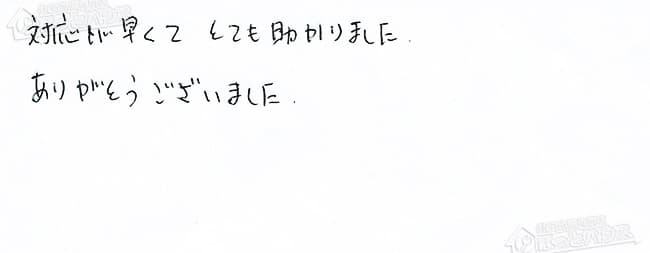 対応が早くて とても助かりました.
ありがとうございました.
ほっとハウス